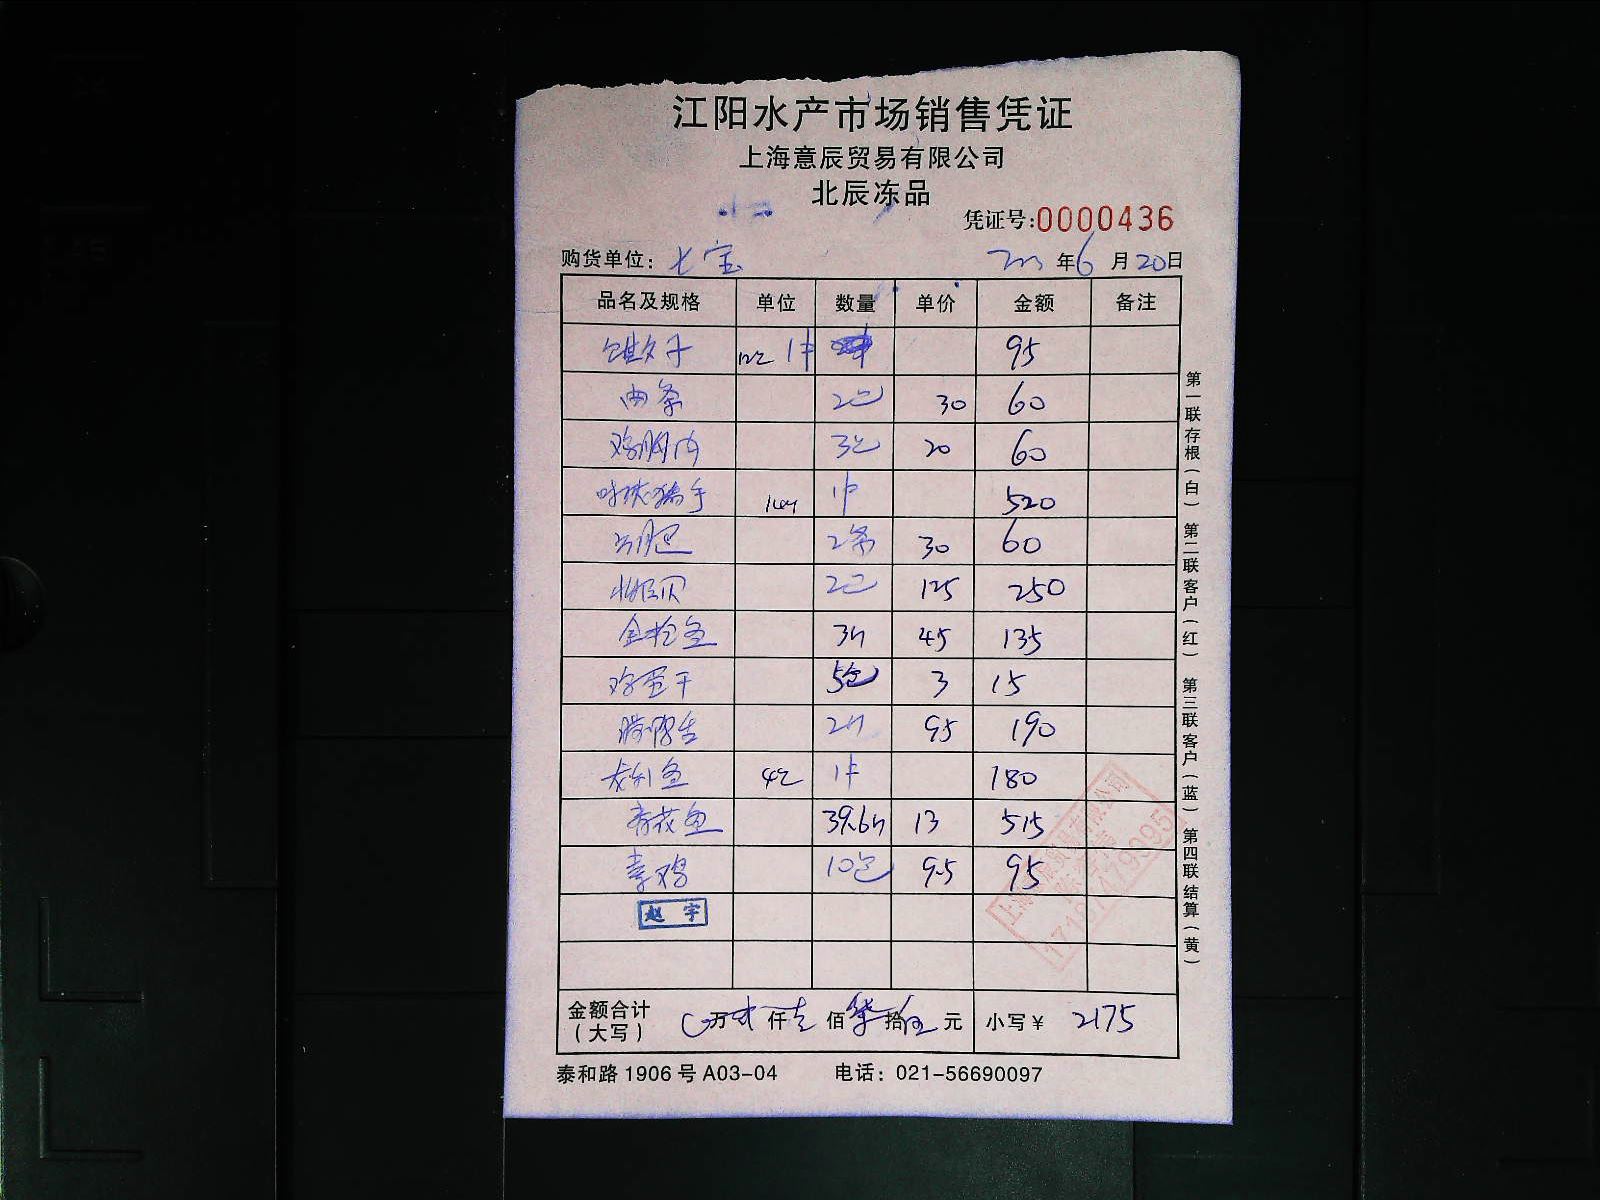 江阳水产市场销售凭证
上海意辰贸易有限公司
北辰冻品
凭证号:0000436
购货单位: 七宝 年6月20日
品名及规格 单位 数量 单价 金额 备注
95
2包 30 60
鸡胸肉 3包 20 60
猪手 1件 520
2条 30 60
2包 125 250
金枪鱼 3斤 45 135
鸡蛋干 5包 3 15
2斤 95 190
鱼 1件 180
青花鱼 39.6斤 13 515
素鸡 10包 9.5 95
赵宇
金额合计(大写) 万 贰 仟 壹 佰 柒 拾 伍 元 小写¥ 2175
泰和路1906号A03-04 电话:021-56690097
第一联存根(白) 第二联客户(红) 第三联客户(蓝) 第四联结算(黄)